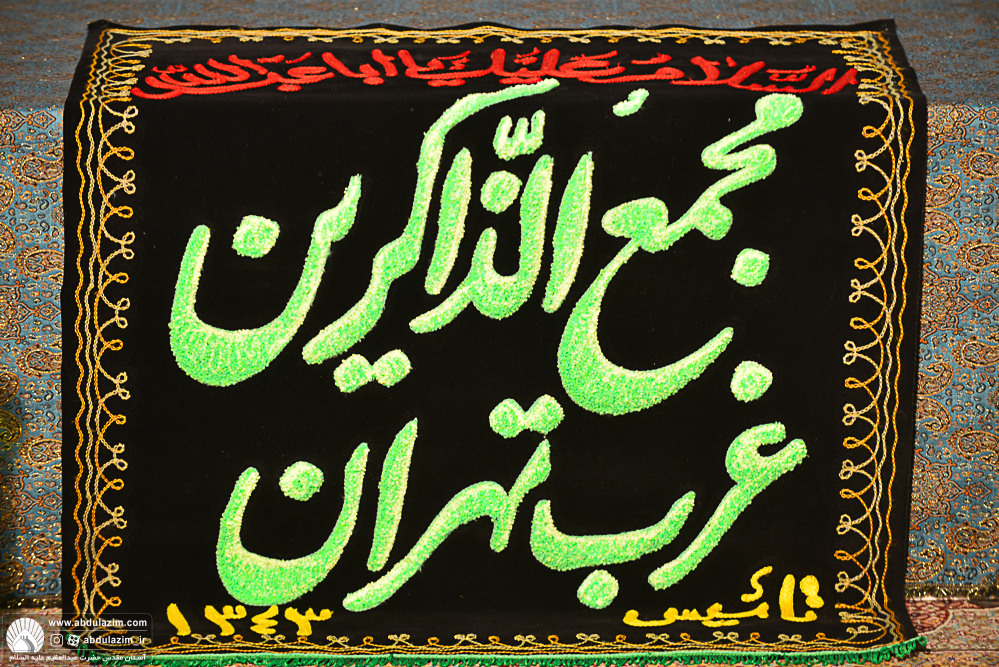 السلام علیک یا ابا عبدالله
مجمع الذّاکرین
غرب تهران
تأسیس ۱۳۴۳
www.abdulazim.com
abdulazim_ir
آستان مقدس حضرت عبدالعظیم علیه السلام